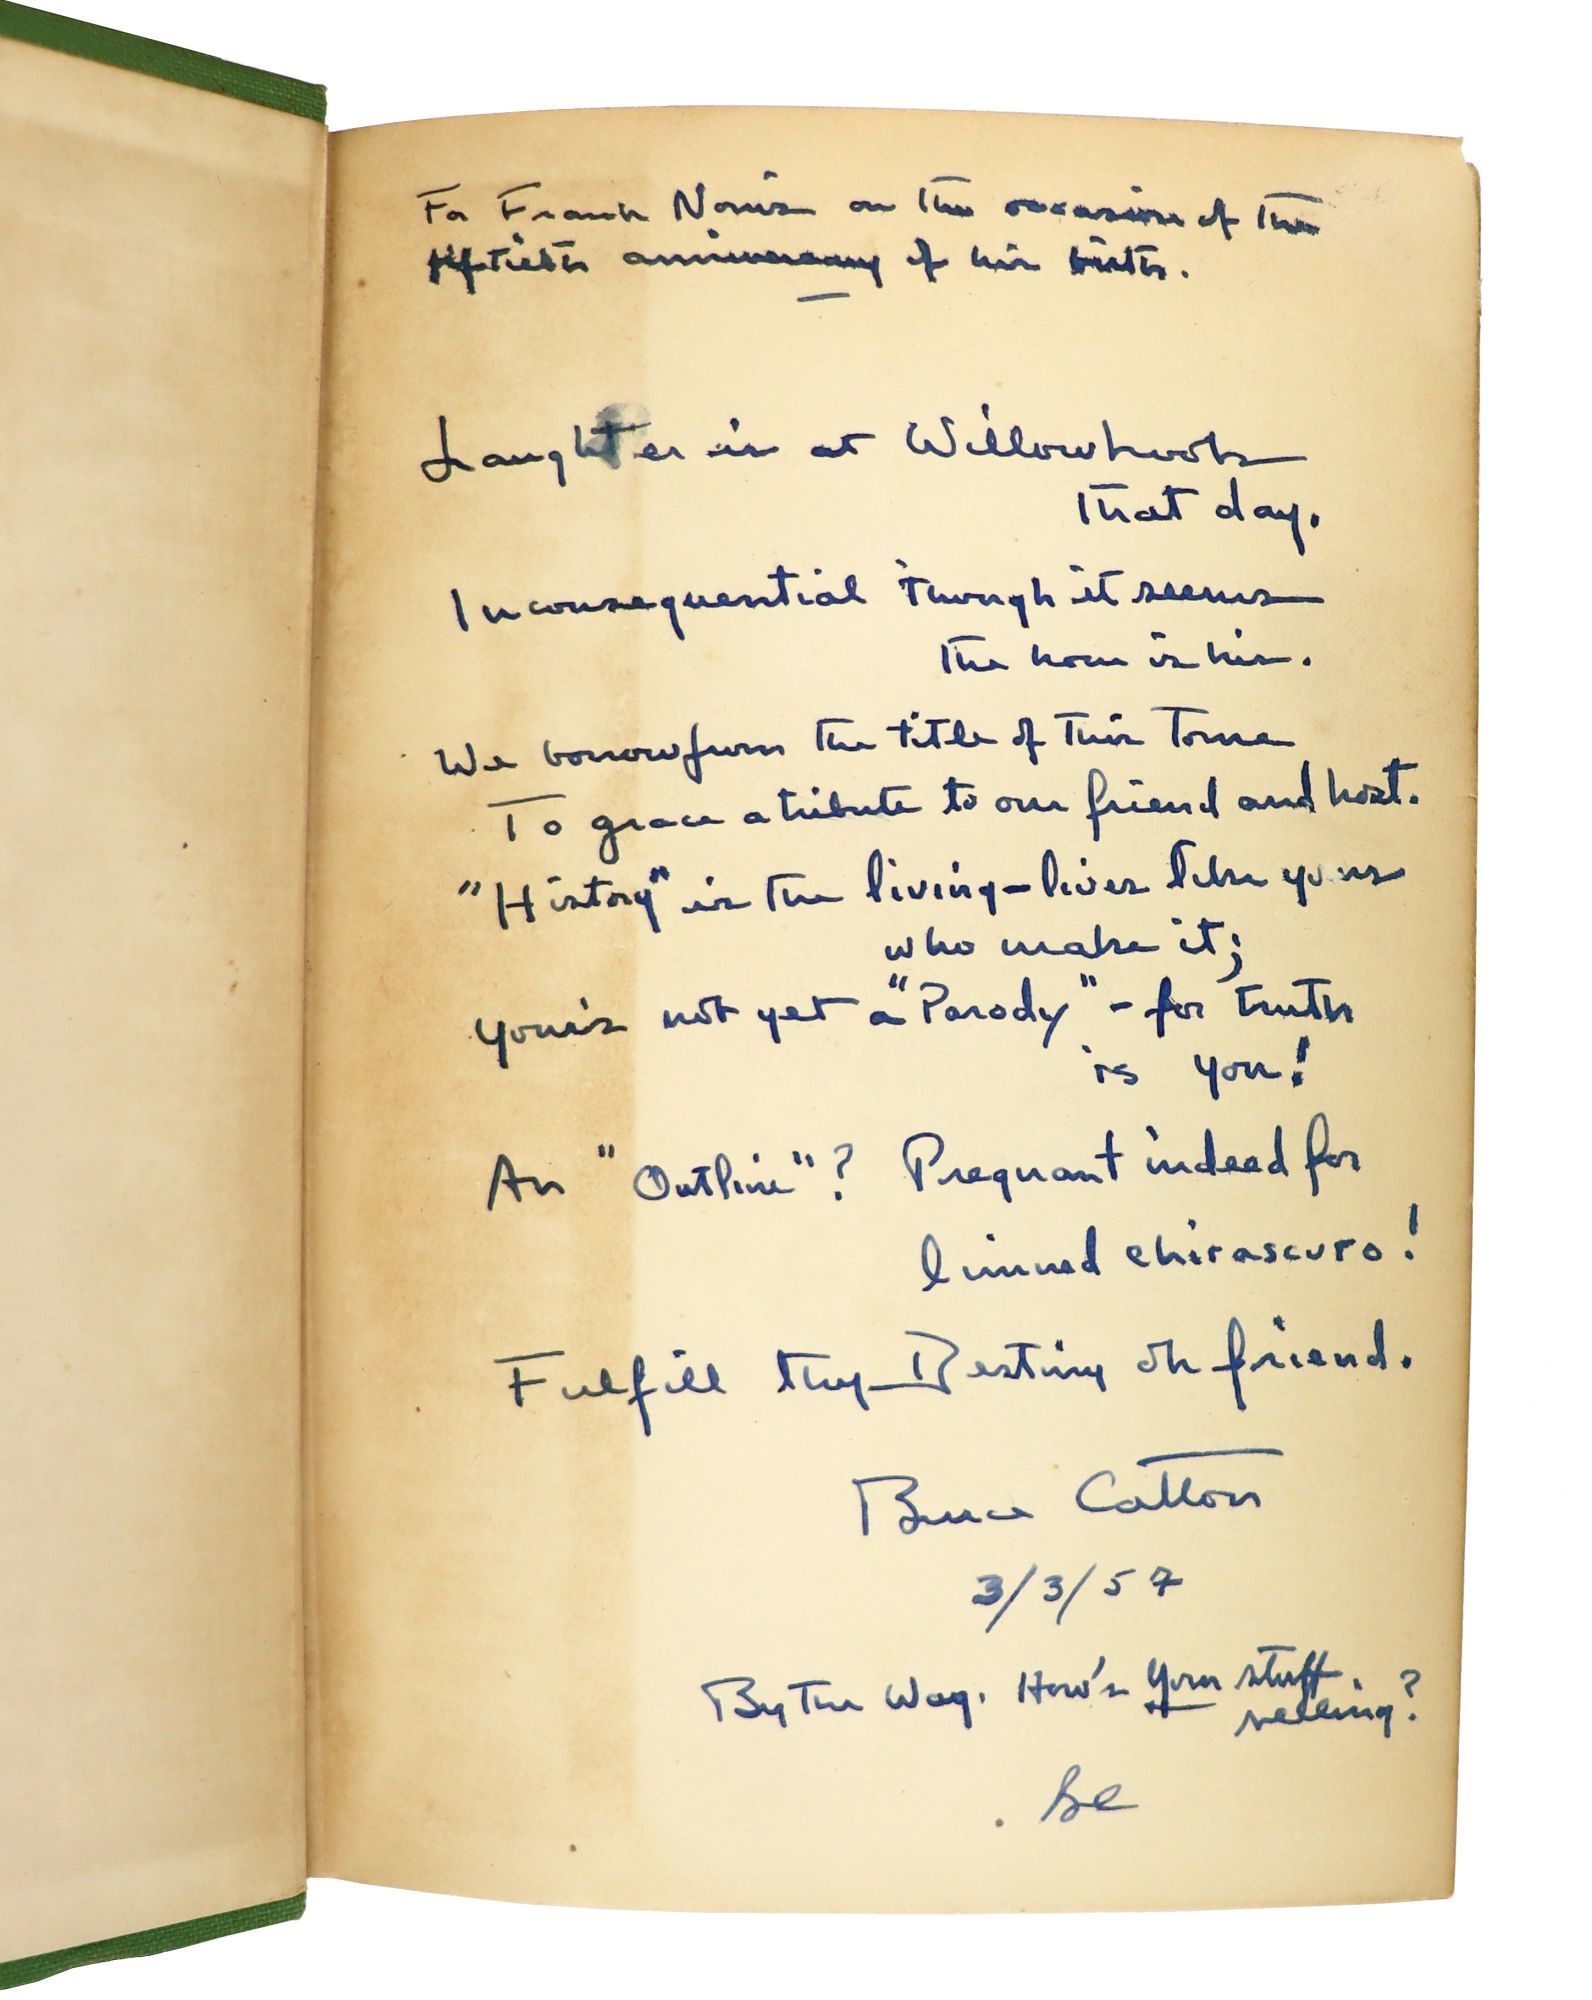 For Frank Norris on the occasion of the
fiftieth anniversary of his birth.
Laughter is at Willowhook
that day.
Inconsequential though it seems
the hour is his.
We borrow from the title of this Tome
To grace a tribute to our friend and host.
"History" is the living – lives like yours
who make it;
Your's not yet a "Parody" – for truth
is you!
An "Outline"? Pregnant indeed for
limned chirascuro!
Fulfill thy Destiny oh friend.
Bruce Catton
3/3/57
By the Way. How's Your stuff
selling?
bc